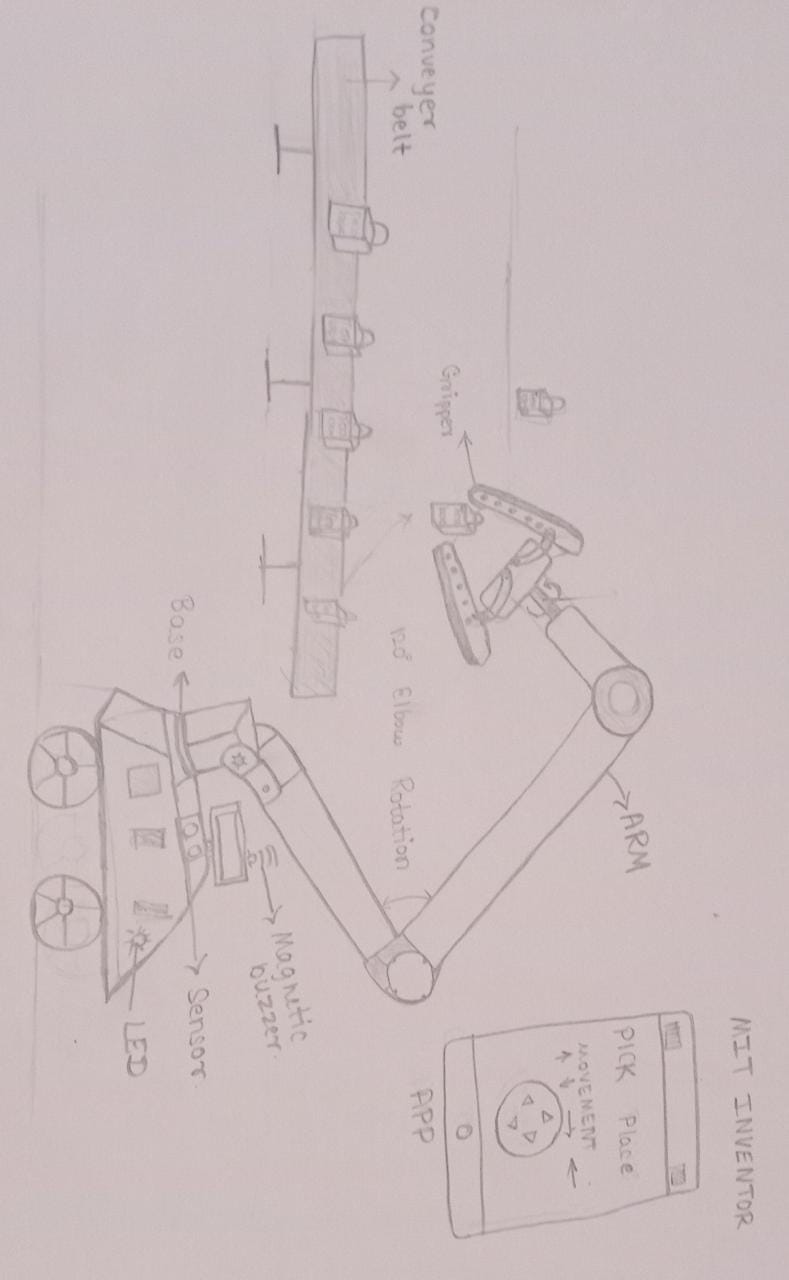 MIT INVENTOR
PICK Place
MOVEMENT
APP
ARM
Gripper
Conveyer
belt
120° Elbow Rotation
Magnetic
buzzer.
Base
Sensor.
LED